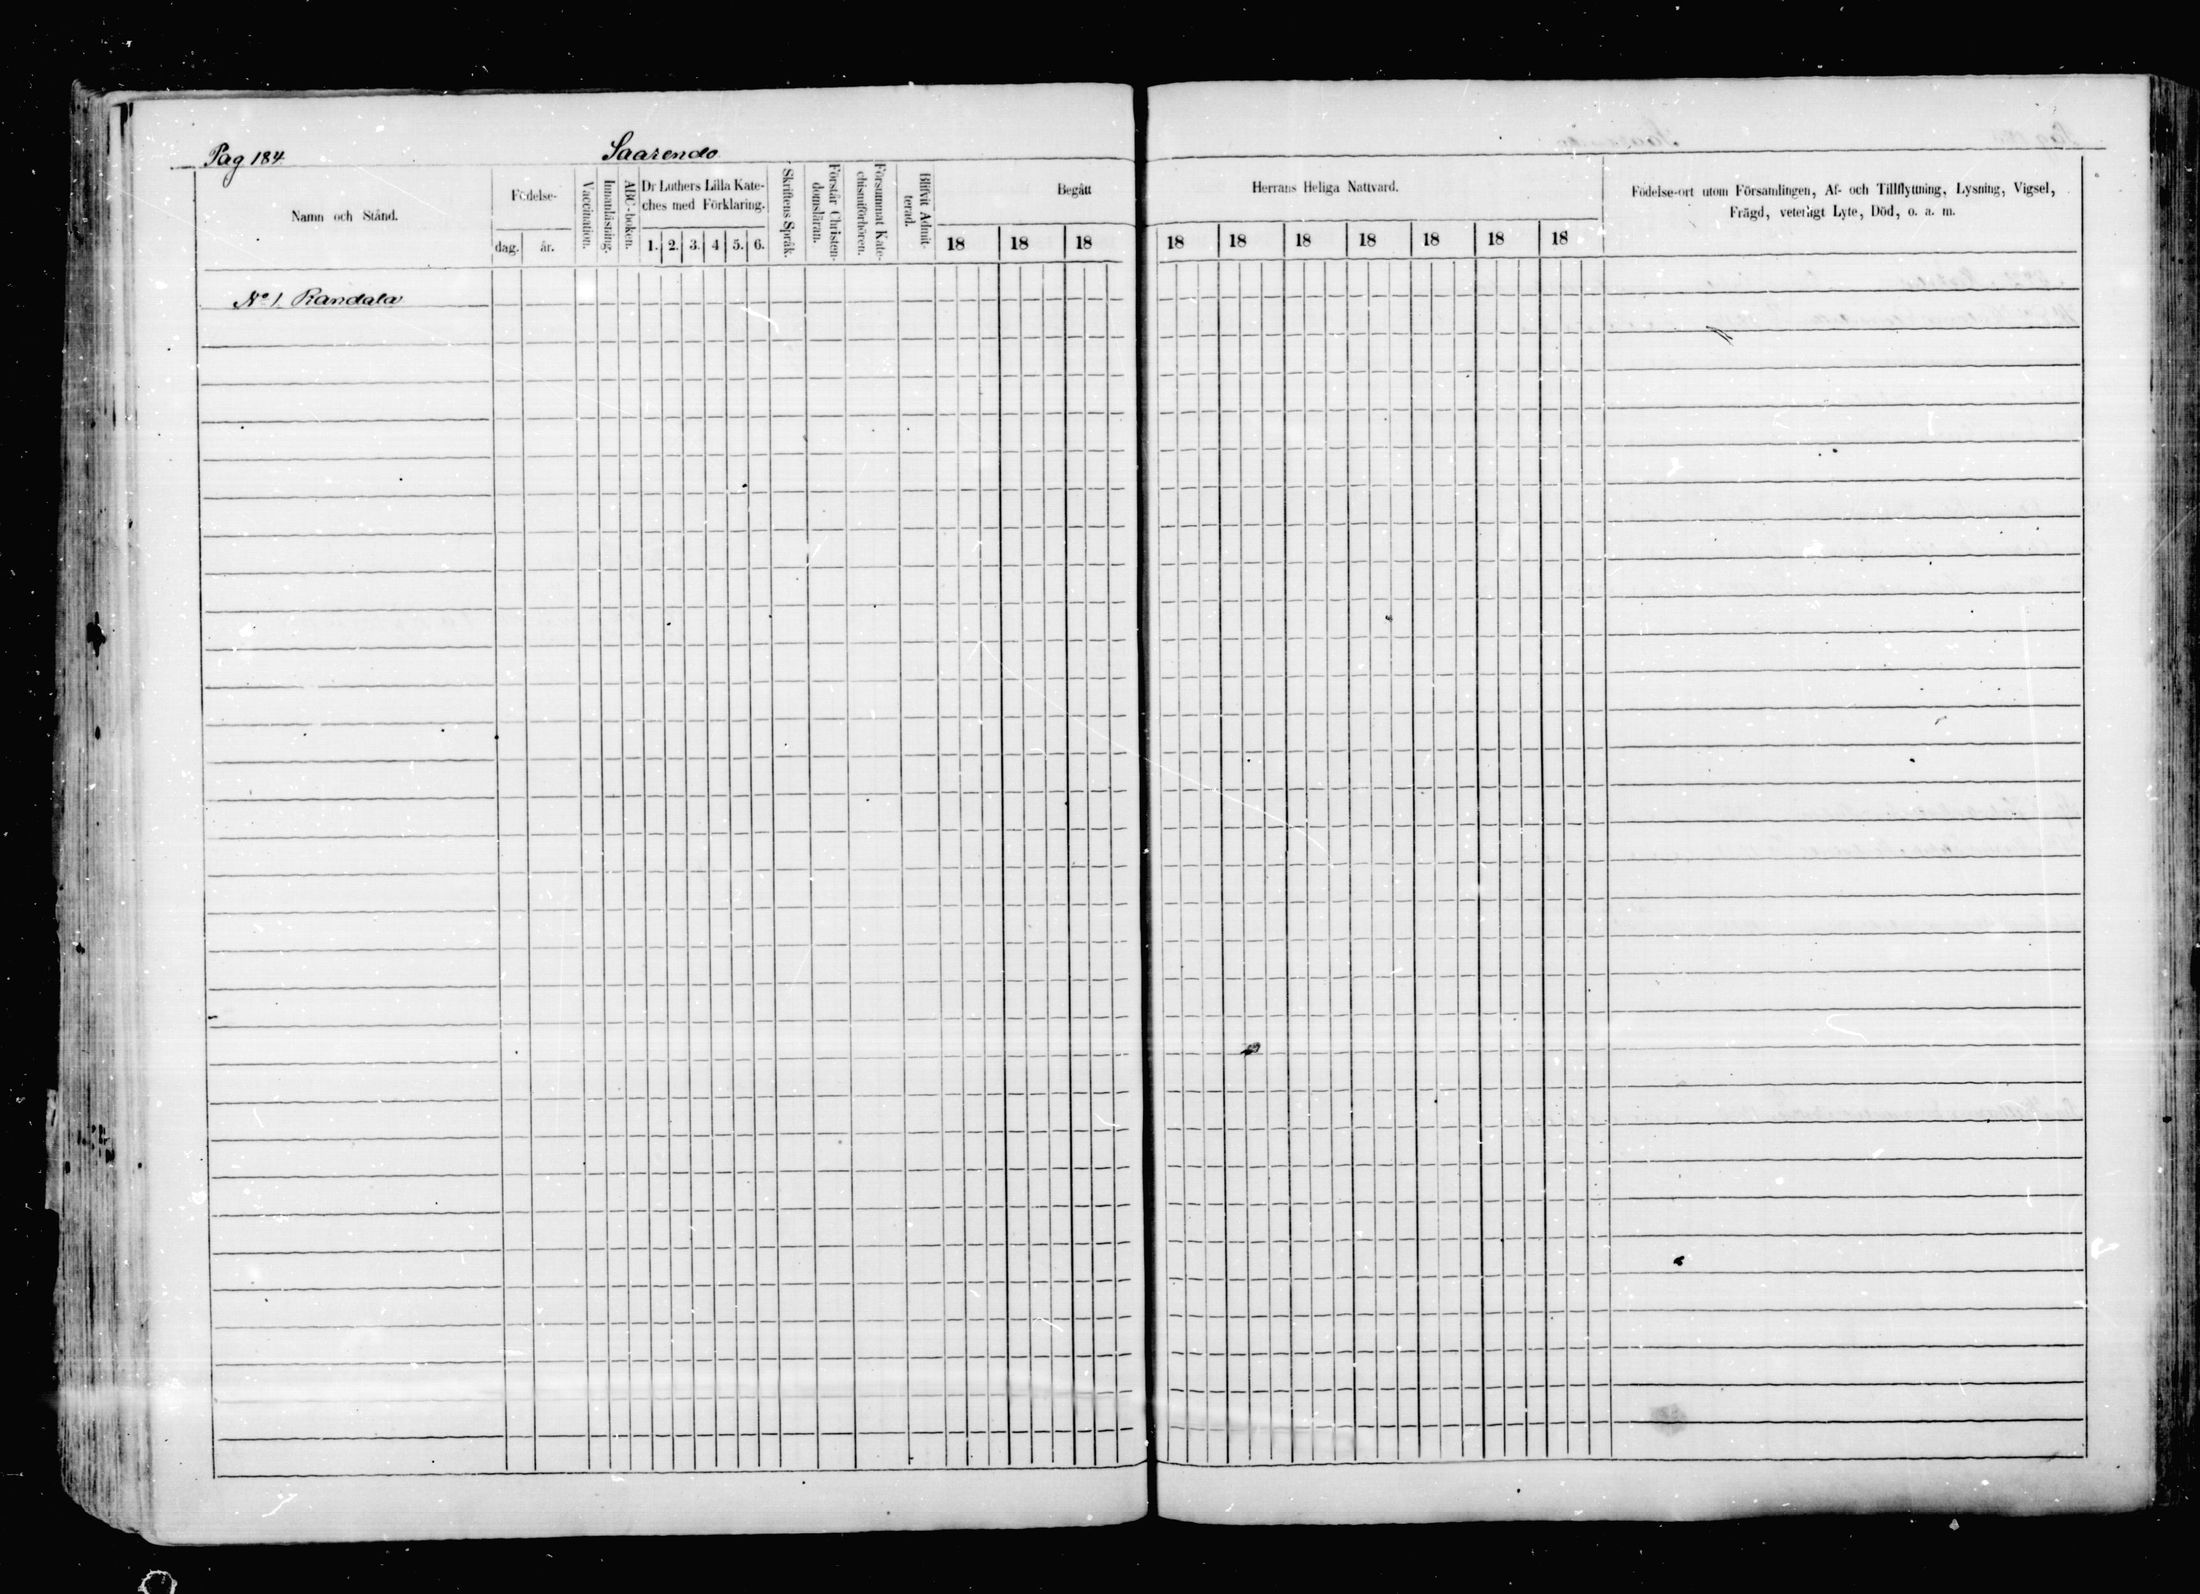 Pag 184
Saarendo
Namn och Stånd.
Födelse-
dag.
år.
Vaccination.
Innanläsning.
ABC-boken.
Dr Luthers Lilla Kate-
ches med Förklaring.
1. 2. 3. 4 5. 6.
Skriftens Språk.
Förstår Christen-
domsläran.
Försummat Kate-
chismiförhören.
Blifvit Admit-
terad.
Begått
18 18 18
Herrans Heliga Nattvard.
18 18 18 18 18 18 18
Födelse-ort utom Församlingen, Af- och Tillflyttning, Lysning, Vigsel,
Frägd, veterligt Lyte, Död, o. a. m.
No 1 Randala